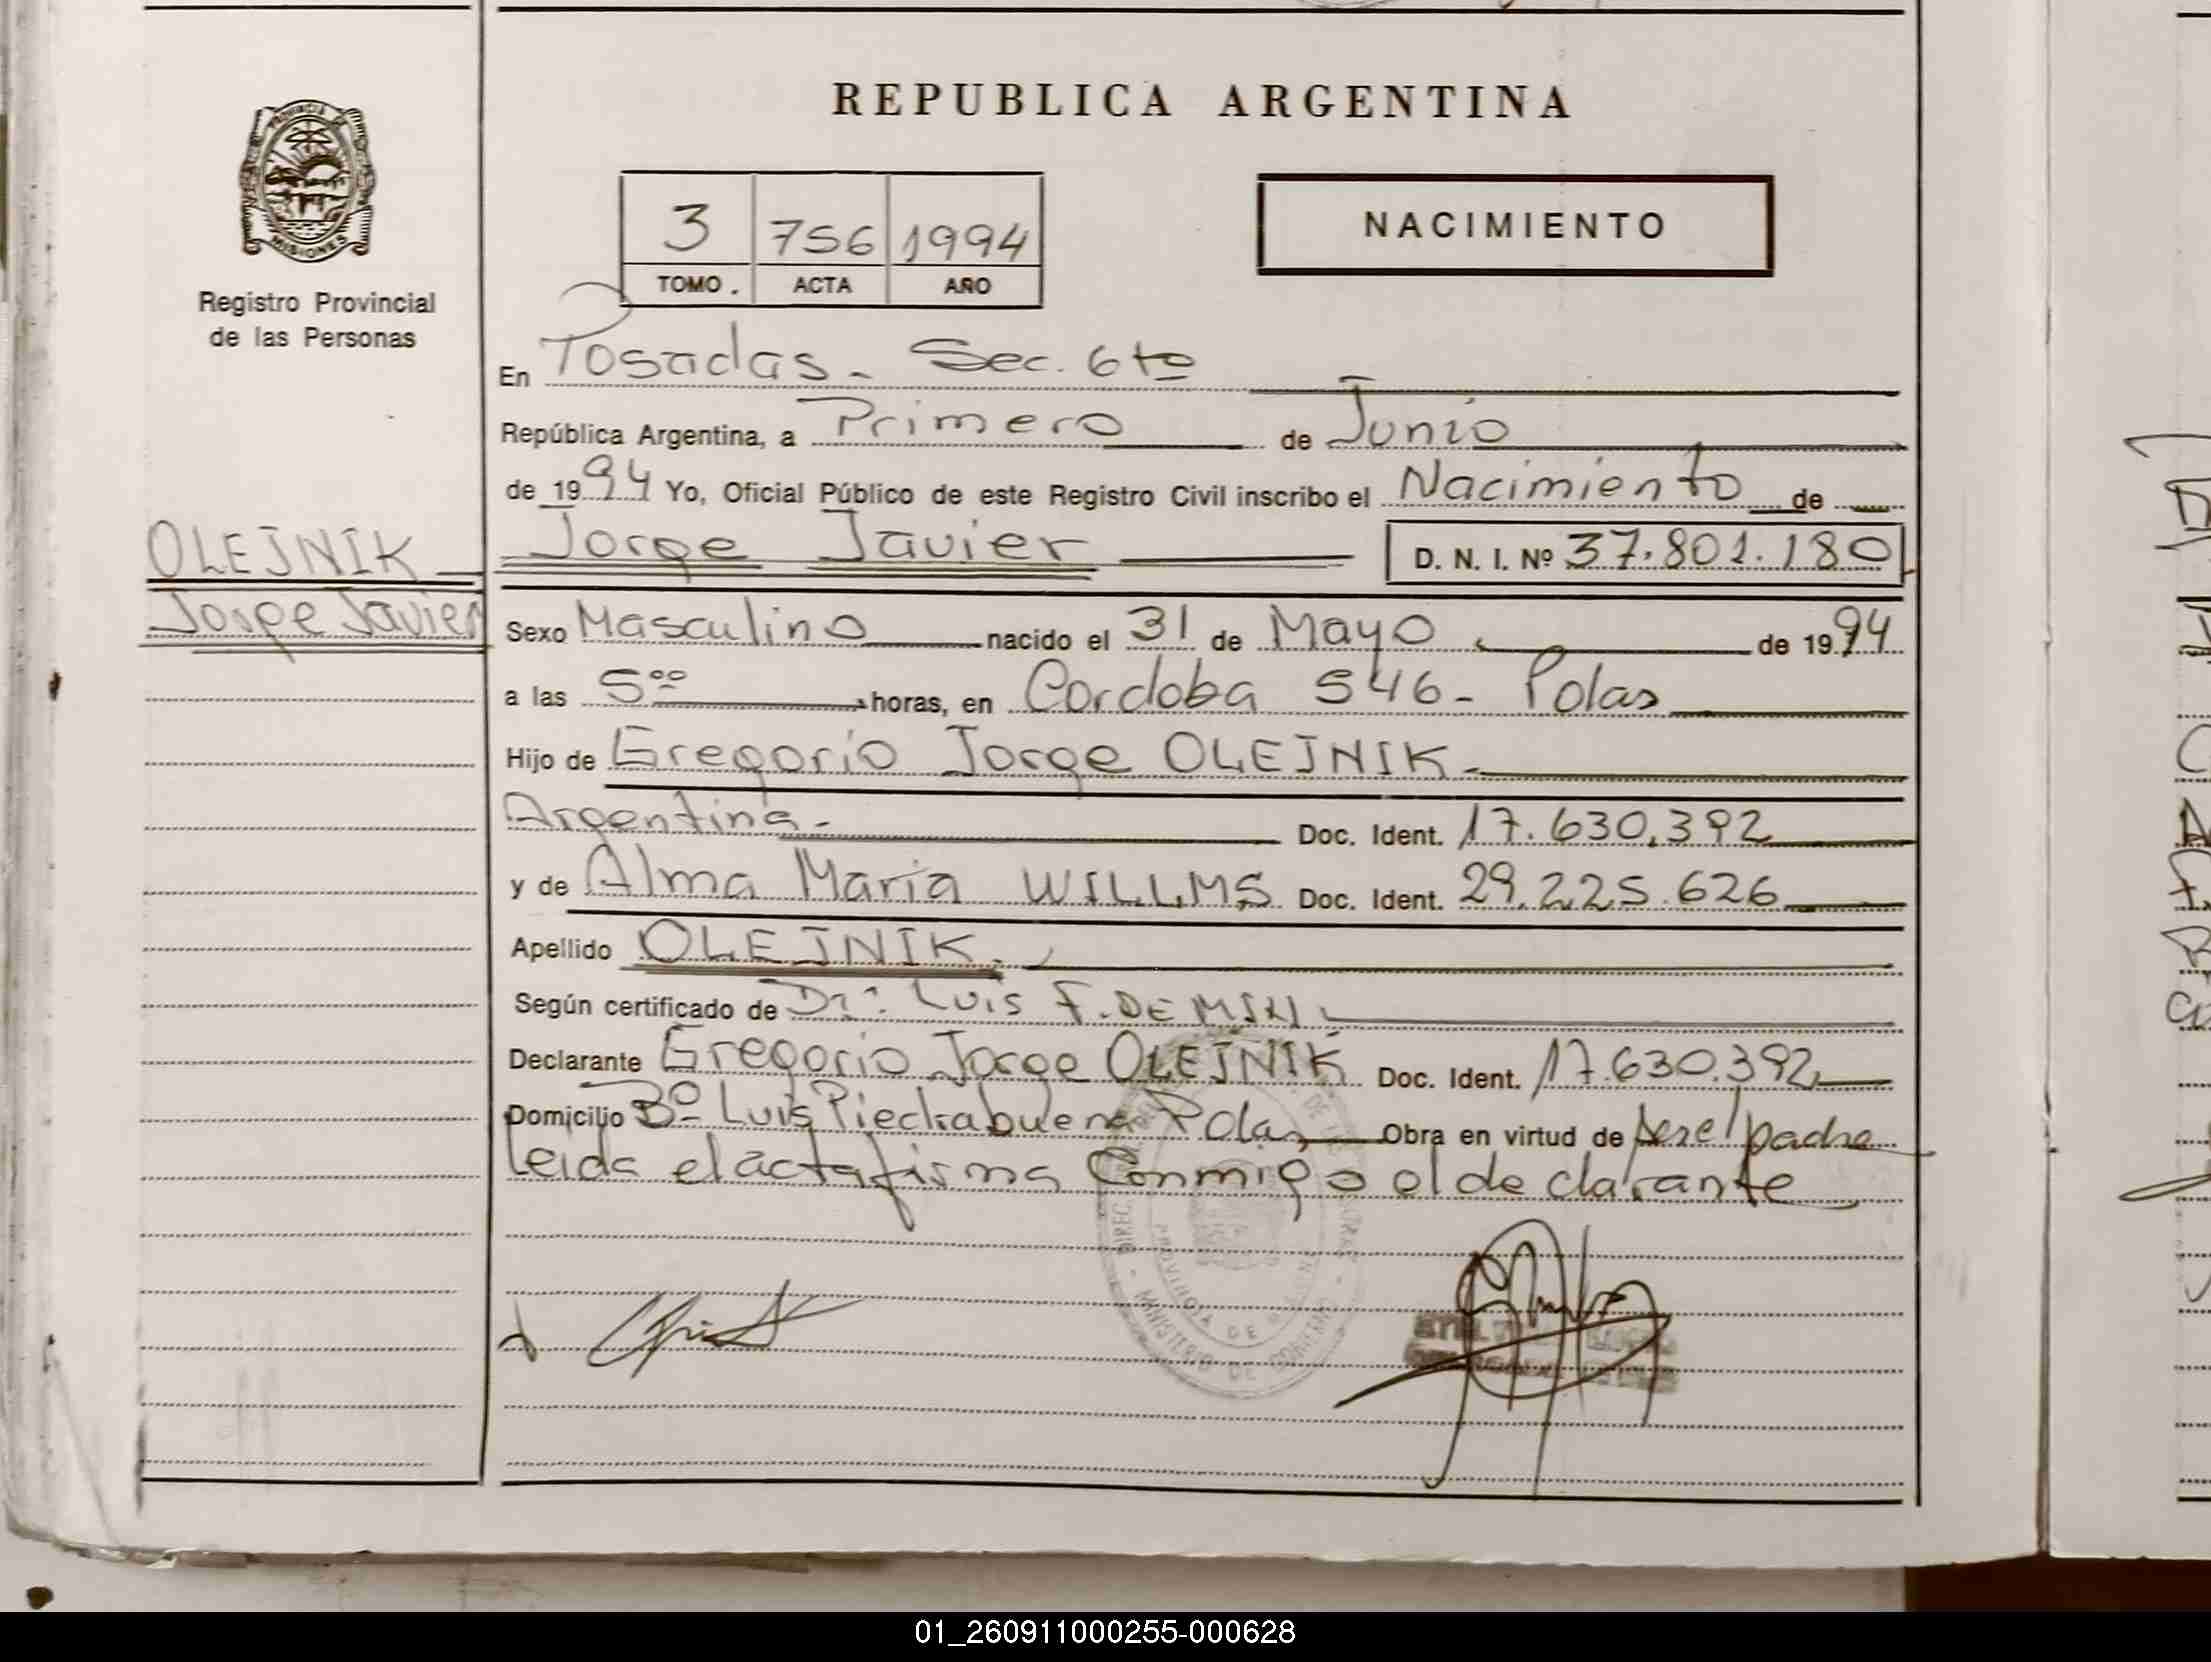 REPUBLICA ARGENTINA
PROVINCIA DE
MISIONES
Registro Provincial
de las Personas
3 756 1994
TOMO. ACTA AÑO
NACIMIENTO
En Posadas - Sec. 6to
República Argentina, a Primero de Junio
de 1994 Yo, Oficial Público de este Registro Civil inscribo el Nacimiento de
OLEJNIK
Jorge Javier
Jorge Javier D. N. I. Nº 37.801.180
Sexo Masculino nacido el 31 de Mayo de 1994
a las 5°° horas, en Cordoba 546 - Pdas
Hijo de Gregorio Jorge OLEJNIK -
Argentina - Doc. Ident. 17.630.392
y de Alma Maria WILLMS Doc. Ident. 29.225.626
Apellido OLEJNIK.
Según certificado de Dr: Luis F. DE
Declarante Gregorio Jorge OLEJNIK Doc. Ident. 17.630.392
Domicilio Bº Luis Piedrabuena Pdas Obra en virtud de ser el padre
Leida el acta firma Conmigo el declarante
DIREC. DE LAS
PROVINCIA DE MISIONES
MINISTERIO DE GOBIERNO
01_260911000255-000628